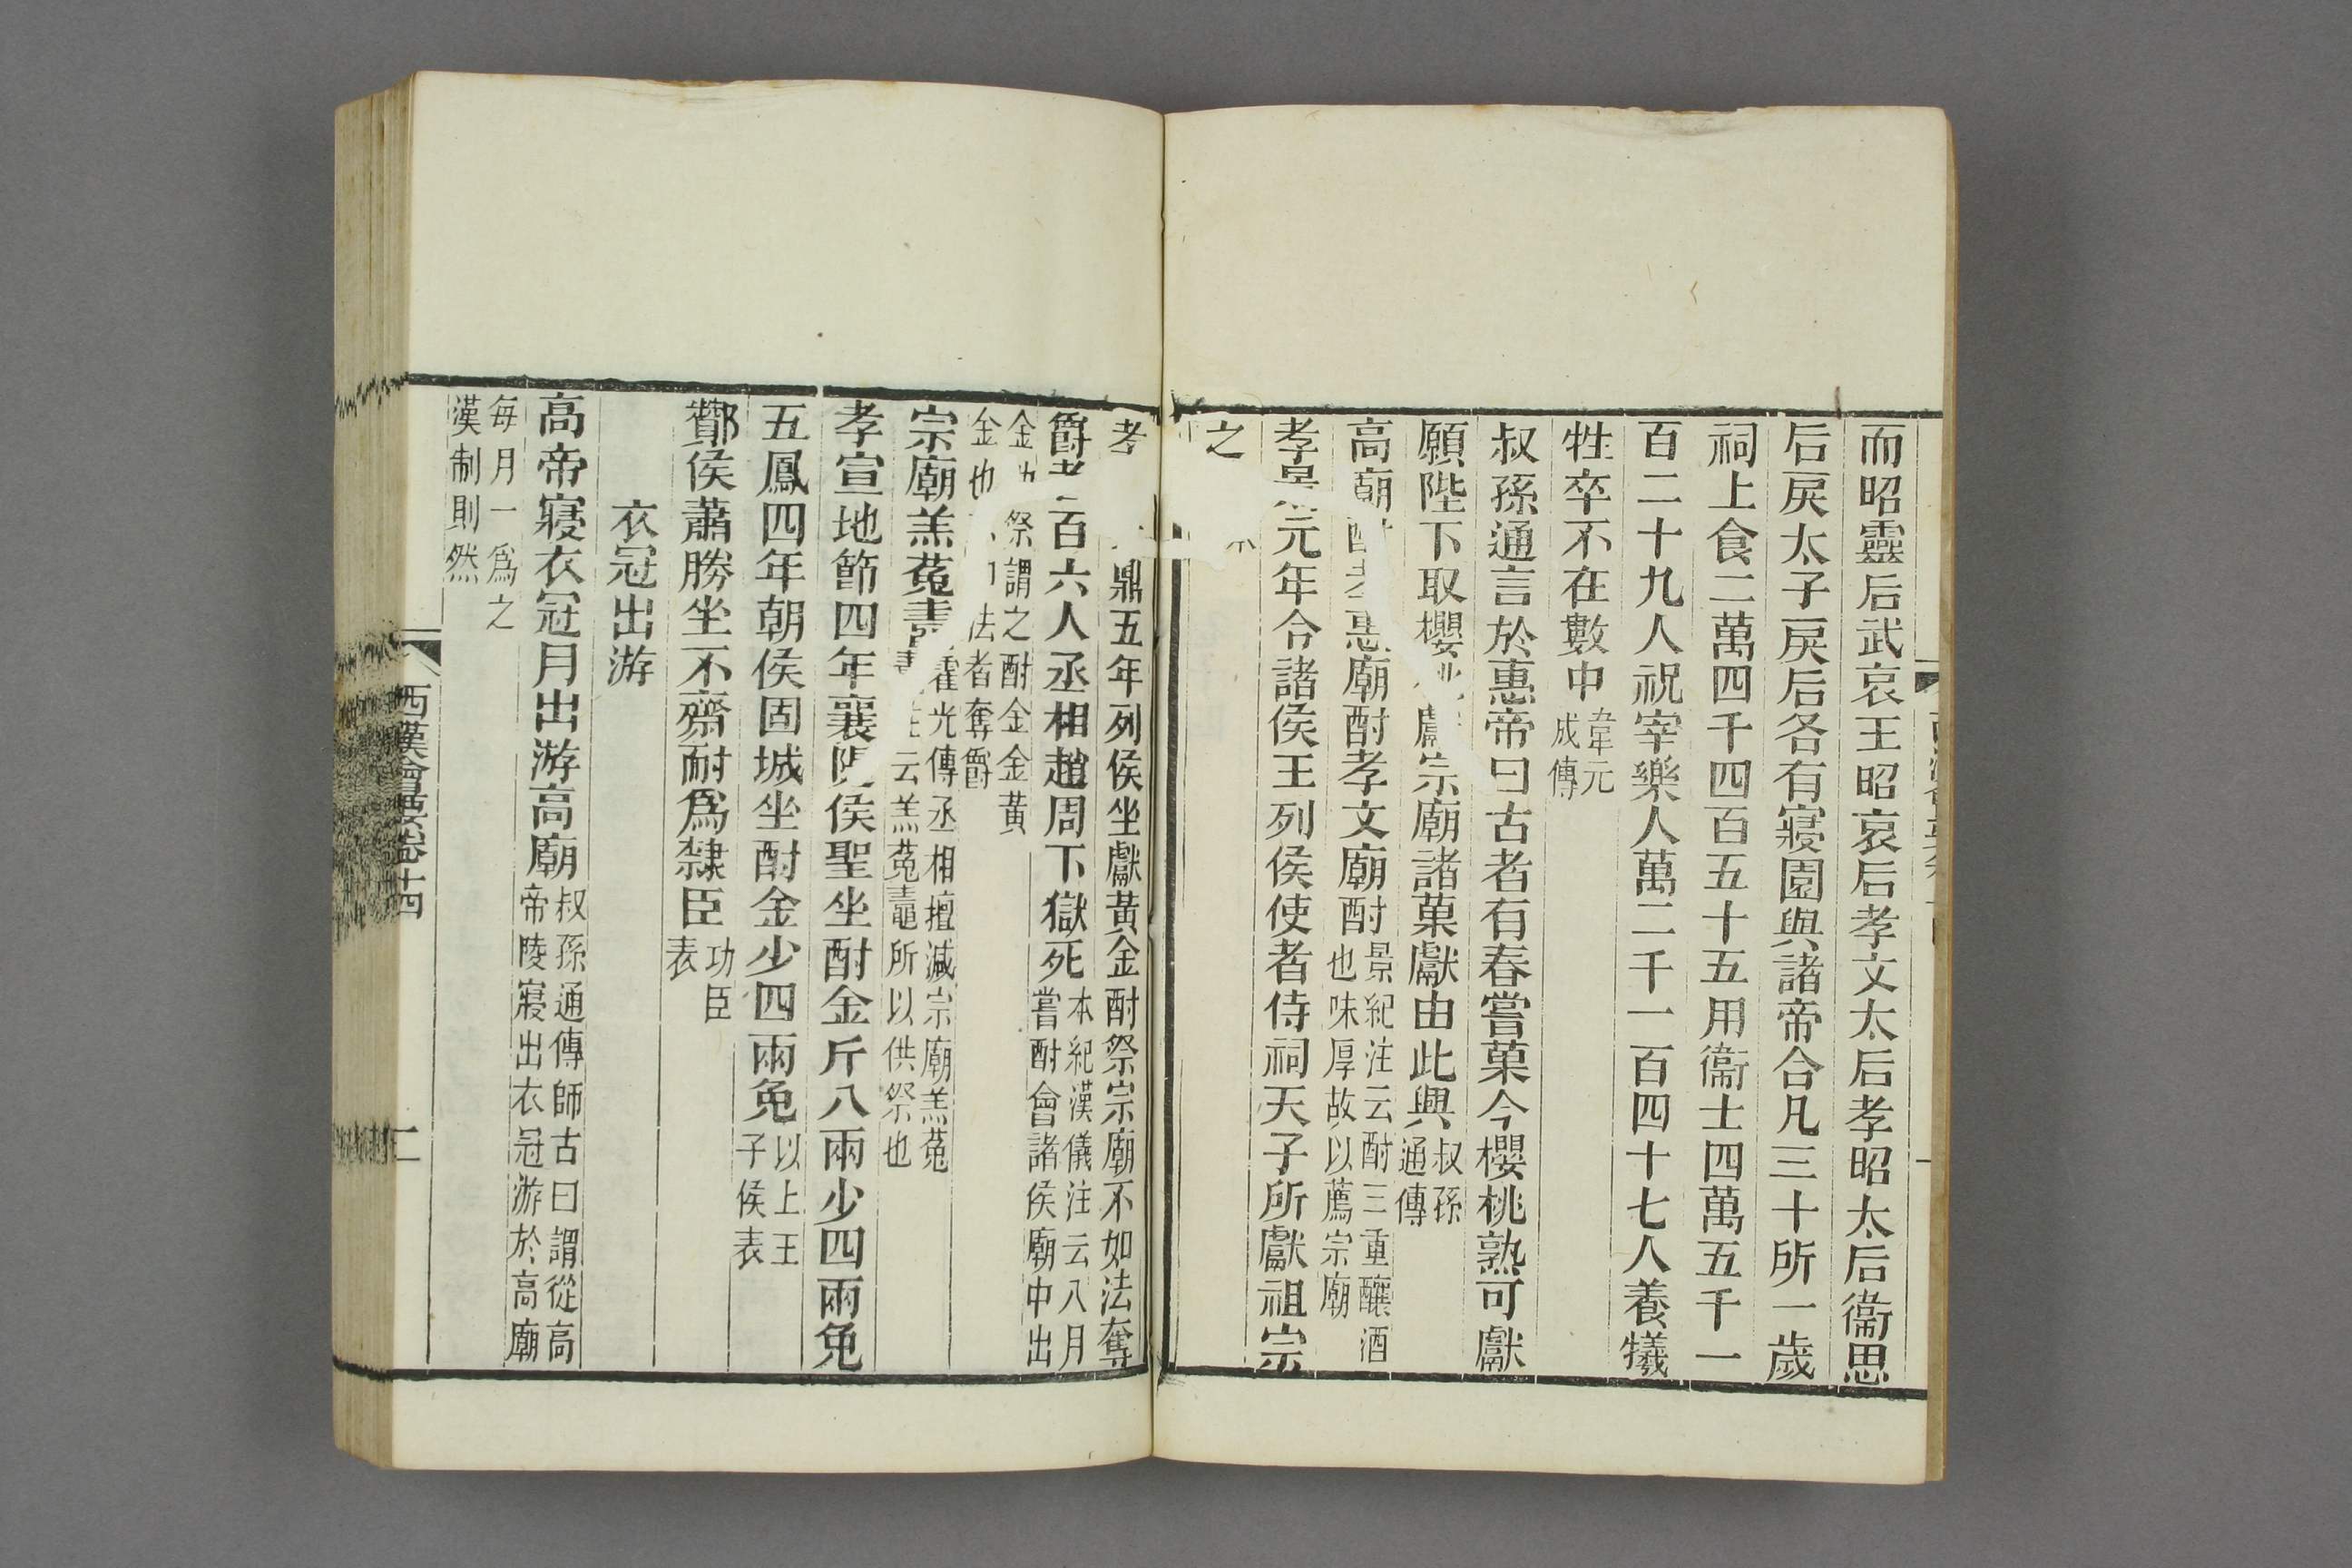 而昭靈后武哀王昭哀后孝文太后孝昭太后衞思
后戾太子戾后各有寢園與諸帝合凡三十所一歲
祠上食二萬四千四百五十五用衞士四萬五千一
百二十九人祝宰樂人萬二千一百四十七人養犧
牲卒不在數中韋元
成傳
叔孫通言於惠帝曰古者有春嘗菓今櫻桃熟可獻
願陛下取櫻獻宗廟諸菓獻由此興叔孫
通傳
高廟酎孝惠廟酎孝文廟酎景紀注云酎三重釀酒
也味厚故以薦宗廟
孝景元年令諸侯王列侯使者侍祠天子所獻祖宗
之
孝鼎五年列侯坐獻黃金酎祭宗廟不如法奪
爵者百六人丞相趙周下獄死本紀漢儀注云八月
嘗酎會諸侯廟中出
金祭謂之酎金金黃
金也法者奪爵
宗廟羔菟霍光傳丞相擅減宗廟羔菟
注云羔菟鼃所以供祭也
孝宣地節四年襄隄侯聖坐酎金斤八兩少四兩免
五鳳四年朝侯固城坐酎金少四兩免以上王
子侯表
酇侯蕭勝坐不齋耐爲隸臣功臣
表
衣冠出游
高帝寢衣冠月出游高廟叔孫通傳師古曰謂從高
帝陵寢出衣冠游於高廟
每月一爲之
漢制則然
西漢會要卷十四
二